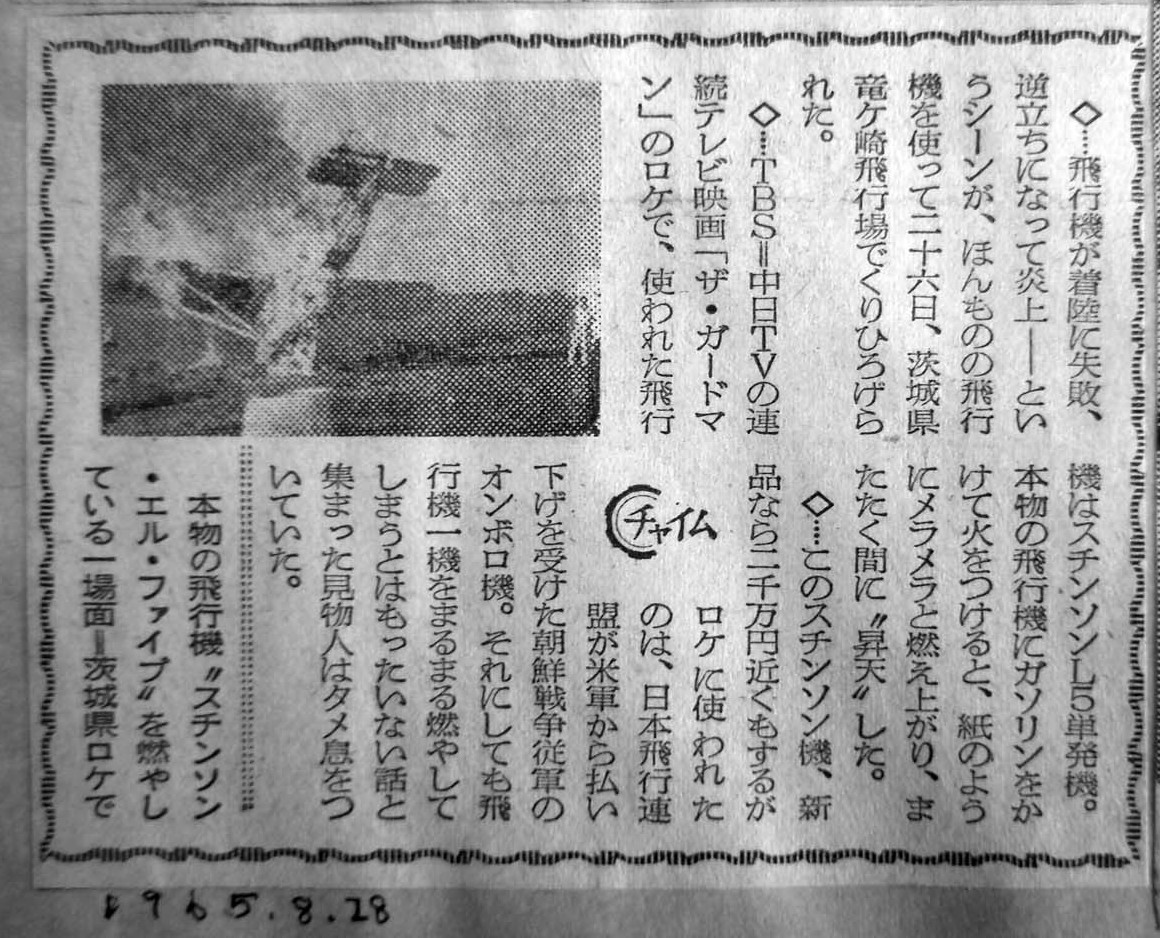 ◇…飛行機が着陸に失敗、
逆立ちになって炎上——とい
うシーンが、ほんものの飛行
機を使って二十六日、茨城県
竜ケ崎飛行場でくりひろげら
れた。
◇…TBS＝中日TVの連
続テレビ映画「ザ・ガードマ
ン」のロケで、使われた飛行
機はスチンソンL5単発機。
本物の飛行機にガソリンをか
けて火をつけると、紙のよう
にメラメラと燃え上がり、ま
たたく間に〝昇天〟した。
◇…このスチンソン機、新
品なら二千万円近くもするが
ロケに使われた
のは、日本飛行連
盟が米軍から払い
下げを受けた朝鮮戦争従軍の
オンボロ機。それにしても飛
行機一機をまるまる燃やして
しまうとはもったいない話と
集まった見物人はタメ息をつ
いていた。
チャイム
本物の飛行機〝スチンソン
・エル・ファイブ〟を燃やし
ている一場面＝茨城県ロケで
1965.8.28